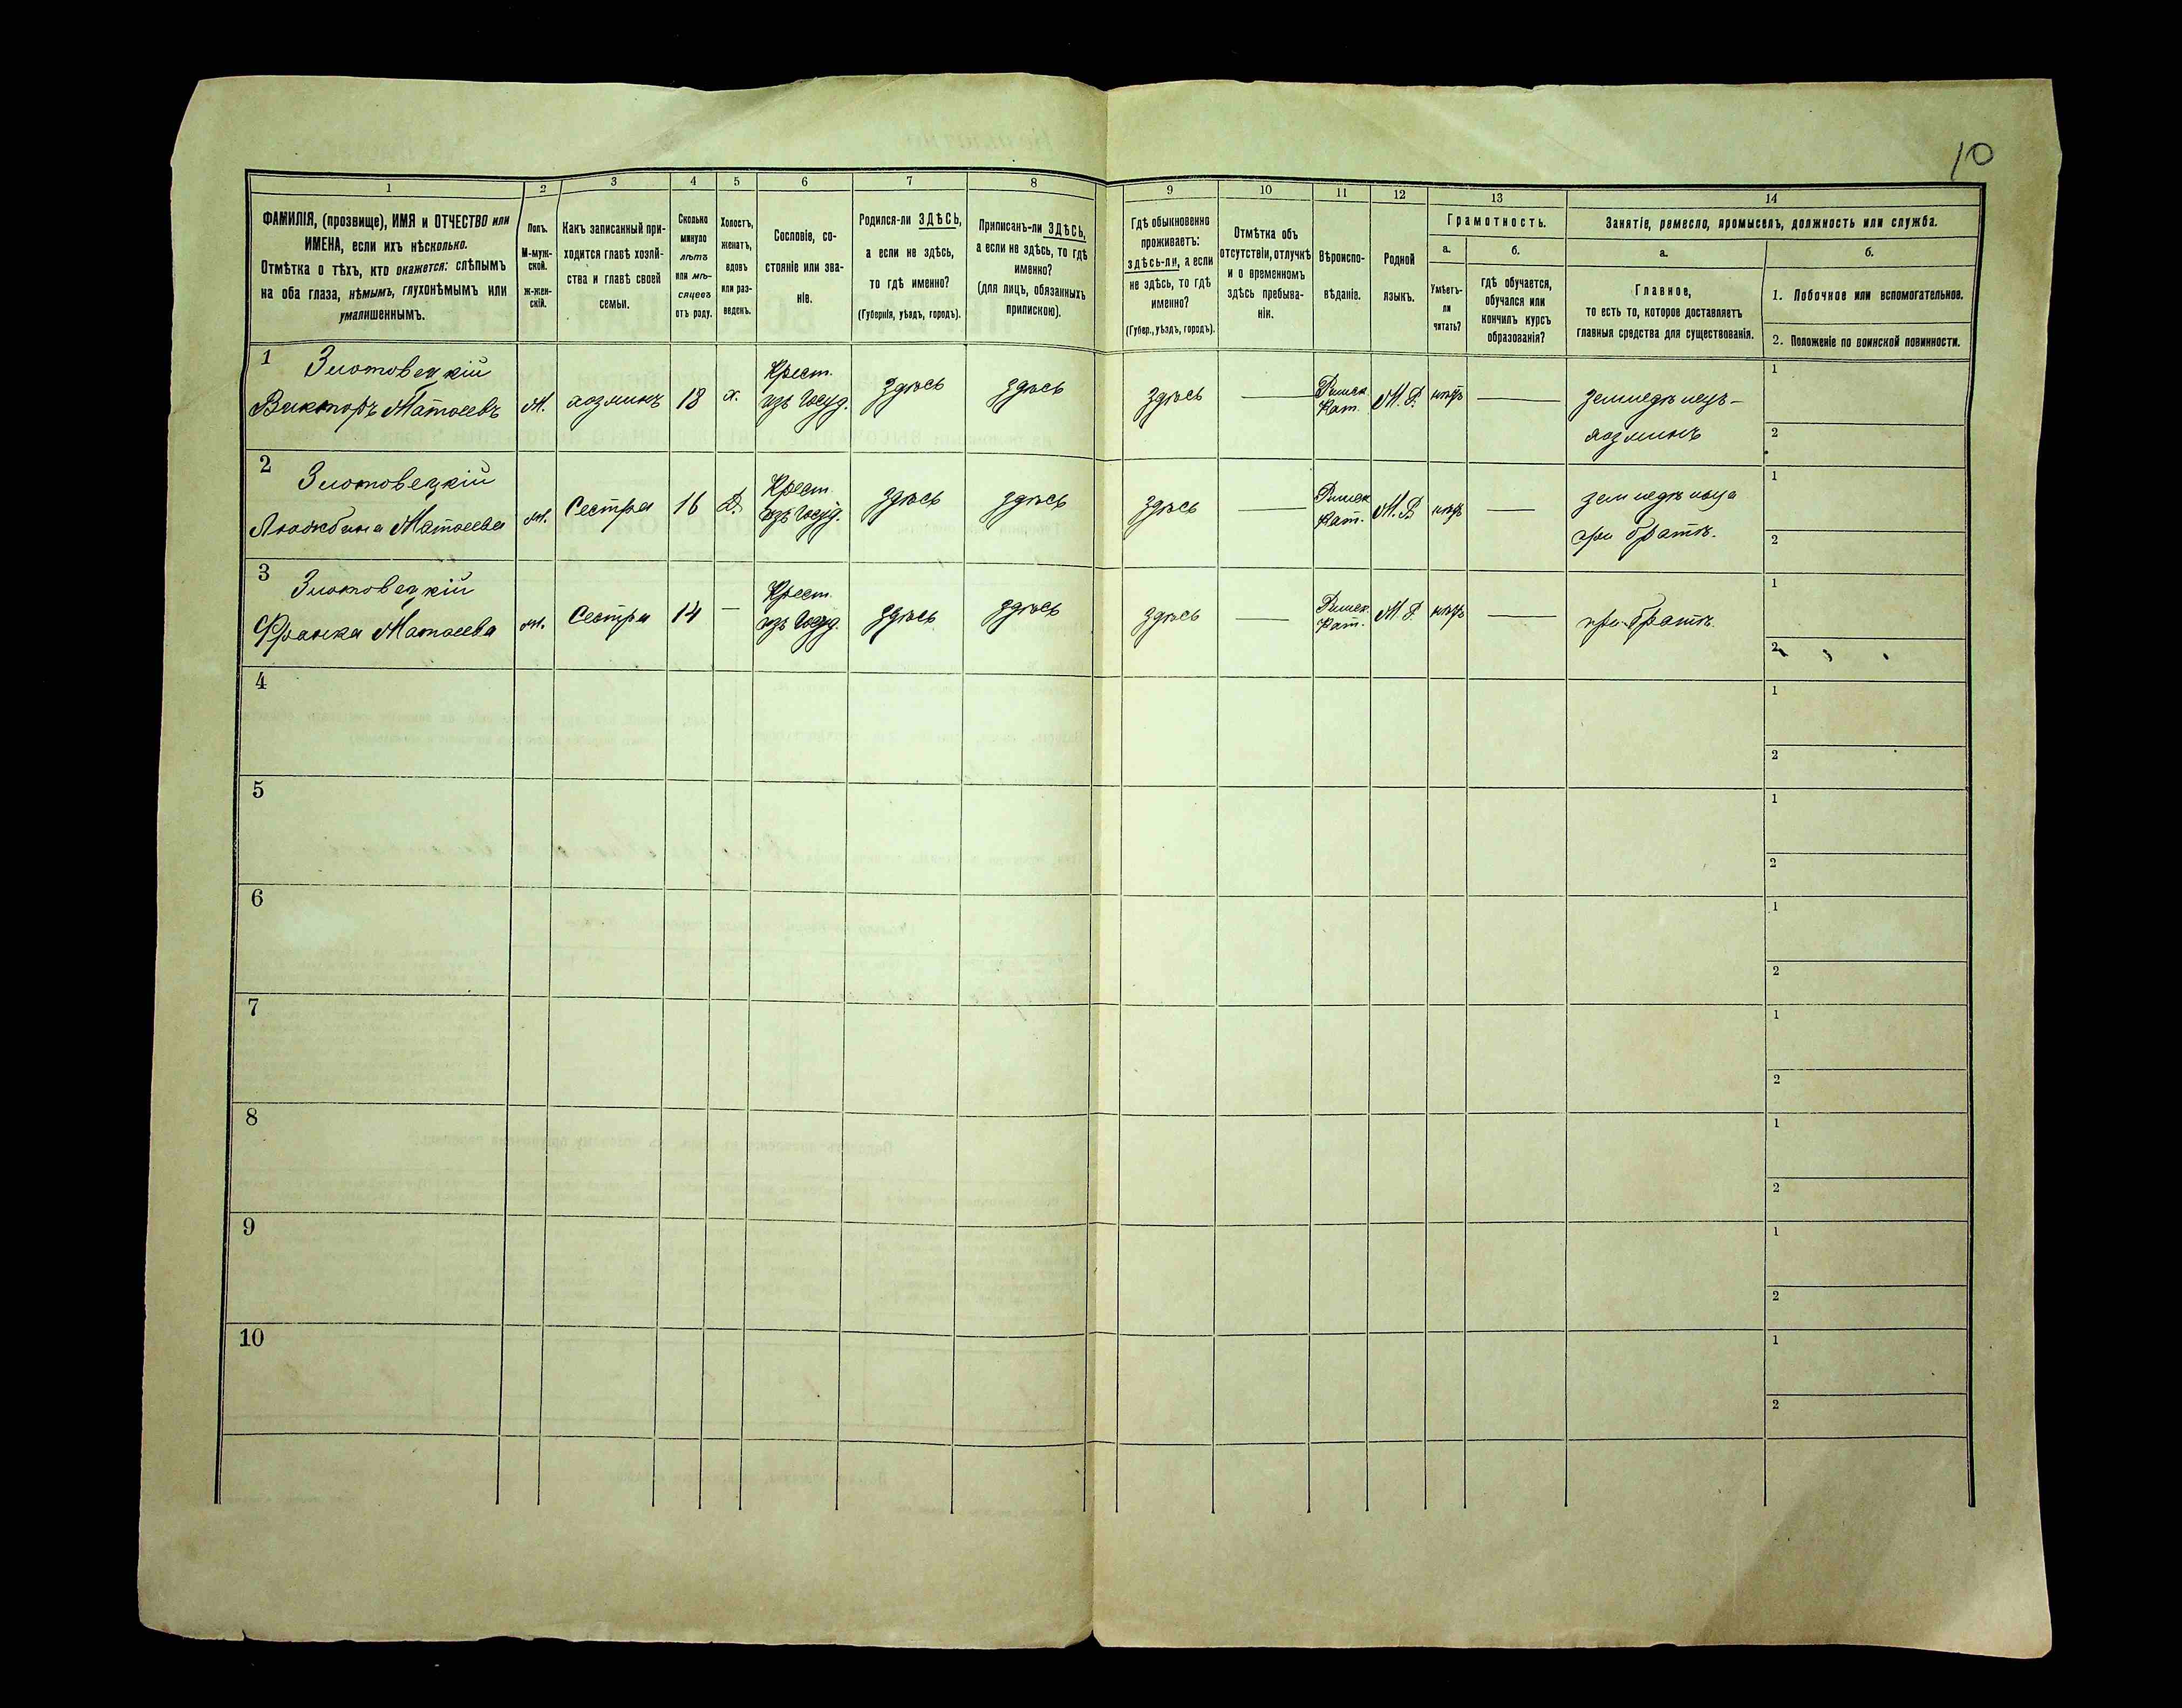 10
1 2 3 4 5 6 7 8 9 10 11 12 13 14
ФАМИЛІЯ, (прозвище), ИМЯ и ОТЧЕСТВО или
ИМЕНА, если ихъ нѣсколько.
Отмѣтка о тѣхъ, кто окажется: слѣпымъ
на оба глаза, нѣмымъ, глухонѣмымъ или
умалишеннымъ.
Полъ.
М-муж-
ской.
ж-жен-
скій.
Какъ записанный при-
ходится главѣ хозяй-
ства и главѣ своей
семьи.
Сколько
минуло
лѣтъ
или мѣ-
сяцевъ
отъ роду.
Холостъ,
женатъ,
вдовъ
или раз-
веденъ.
Сословіе, со-
стояніе или зва-
ніе.
Родился-ли ЗДѢСЬ,
а если не здѣсь,
то гдѣ именно?
(Губернія, уѣздъ, городъ).
Приписанъ-ли ЗДѢСЬ,
а если не здѣсь, то гдѣ
именно?
(для лицъ, обязанныхъ
припискою).
Гдѣ обыкновенно
проживаетъ:
здѣсь-ли, а если
не здѣсь, то гдѣ
именно?
(Губер., уѣздъ, городъ).
Отмѣтка объ
отсутствіи, отлучкѣ
и о временномъ
здѣсь пребыва-
ніи.
Вѣроиспо-
вѣданіе.
Родной
языкъ.
Грамотность.
а.
Умѣетъ-
ли
читать?
б.
гдѣ обучается,
обучался или
кончилъ курсъ
образованія?
Занятіе, ремесло, промыселъ, должность или служба.
а.
Главное,
то есть то, которое доставляетъ
главныя средства для существованія.
б.
1. Побочное или вспомогательное.
2. Положеніе по воинской повинности.
1 Злотовецкій
Викторъ Матвеевъ м. хозяинъ 18 х. Крест. изъ Госуд. здѣсь здѣсь здѣсь — Римск. Кат. нѣтъ — земледѣлецъ-
хозяинъ
1
2
2 Злотовецкій
Людвина Матвеева Сестра 16 Д. Крест. изъ Госуд. здѣсь здѣсь здѣсь Римск. Кат. нѣтъ — земледѣлица
при братѣ.
1
2
3 Злотовецкій
Франка Матвеева Сестра 14 — Крест. изъ Госуд. здѣсь здѣсь здѣсь — Римск. Кат. нѣтъ — при братѣ.
1
2
4
1
2
5
1
2
6
1
2
7
1
2
8
1
2
9
1
2
10
1
2